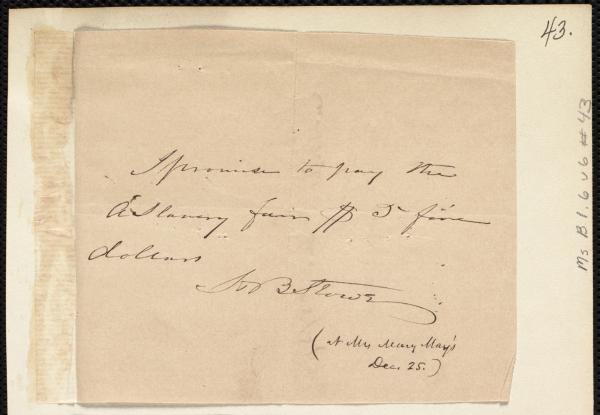 43.
I promise to pay the
A Slavery fair $ 5 five
dollars
H B Stowe
(At Mrs Mary May's
Dec. 25.)
Ms B 1.6 v 6 # 43